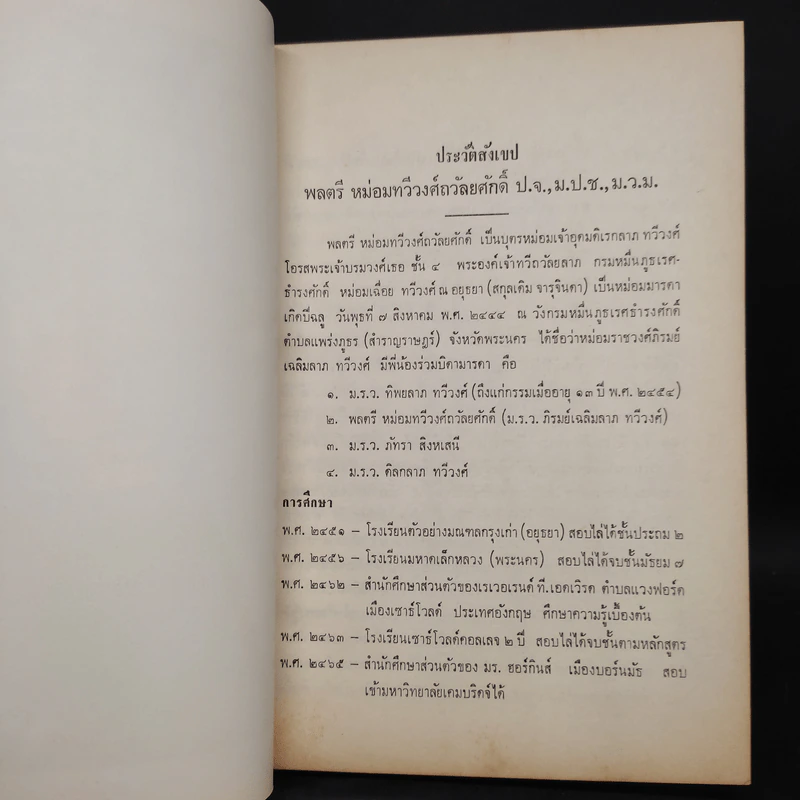 ประวัติสังเขป
พลตรี หม่อมทวีวงศ์ถวัลยศักดิ์ ป.จ.,ม.ป.ช.,ม.ว.ม.
พลตรี หม่อมทวีวงศ์ถวัลยศักดิ์ เป็นบุตรหม่อมเจ้าอุดมดิเรกลาภ ทวีวงศ์
โอรสพระเจ้าบรมวงศ์เธอ ชั้น ๔ พระองค์เจ้าทวีถวัลยลาภ กรมหมื่นภูธเรศ-
ธำรงศักดิ์ หม่อมเฉื่อย ทวีวงศ์ ณ อยุธยา (สกุลเดิม จารุจินดา) เป็นหม่อมมารดา
เกิดปีฉลู วันพุธที่ ๗ สิงหาคม พ.ศ. ๒๔๔๔ ณ วังกรมหมื่นภูธเรศธำรงศักดิ์
ตำบลแพร่งภูธร (สำราญราษฎร์) จังหวัดพระนคร ได้ชื่อว่าหม่อมราชวงศ์ภิรมย์
เฉลิมลาภ ทวีวงศ์ มีพี่น้องร่วมบิดามารดา คือ
๑. ม.ร.ว. ทิพยลาภ ทวีวงศ์ (ถึงแก่กรรมเมื่ออายุ ๑๓ ปี พ.ศ. ๒๔๕๔)
๒. พลตรี หม่อมทวีวงศ์ถวัลยศักดิ์ (ม.ร.ว. ภิรมย์เฉลิมลาภ ทวีวงศ์)
๓. ม.ร.ว. ภัทรา สิงหเสนี
๔. ม.ร.ว. ดิลกลาภ ทวีวงศ์
การศึกษา
พ.ศ. ๒๔๕๑ – โรงเรียนตัวอย่างมณฑลกรุงเก่า (อยุธยา) สอบไล่ได้ชั้นประถม ๒
พ.ศ. ๒๔๕๖ – โรงเรียนมหาดเล็กหลวง (พระนคร) สอบไล่ได้จบชั้นมัธยม ๗
พ.ศ. ๒๔๖๒ – สำนักศึกษาส่วนตัวของเรเวอเรนด์ ที.เอดเวิรด ตำบลแวงฟอร์ด
เมืองเซาธ์โวลด์ ประเทศอังกฤษ ศึกษาความรู้เบื้องต้น
พ.ศ. ๒๔๖๓ – โรงเรียนเซาธ์โวลด์คอลเลจ ๒ ปี สอบไล่ได้จบชั้นตามหลักสูตร
พ.ศ. ๒๔๖๕ – สำนักศึกษาส่วนตัวของ มร. ฮอร์กินส์ เมืองบอร์นมัธ สอบ
เข้ามหาวิทยาลัยเคมบริดจ์ได้